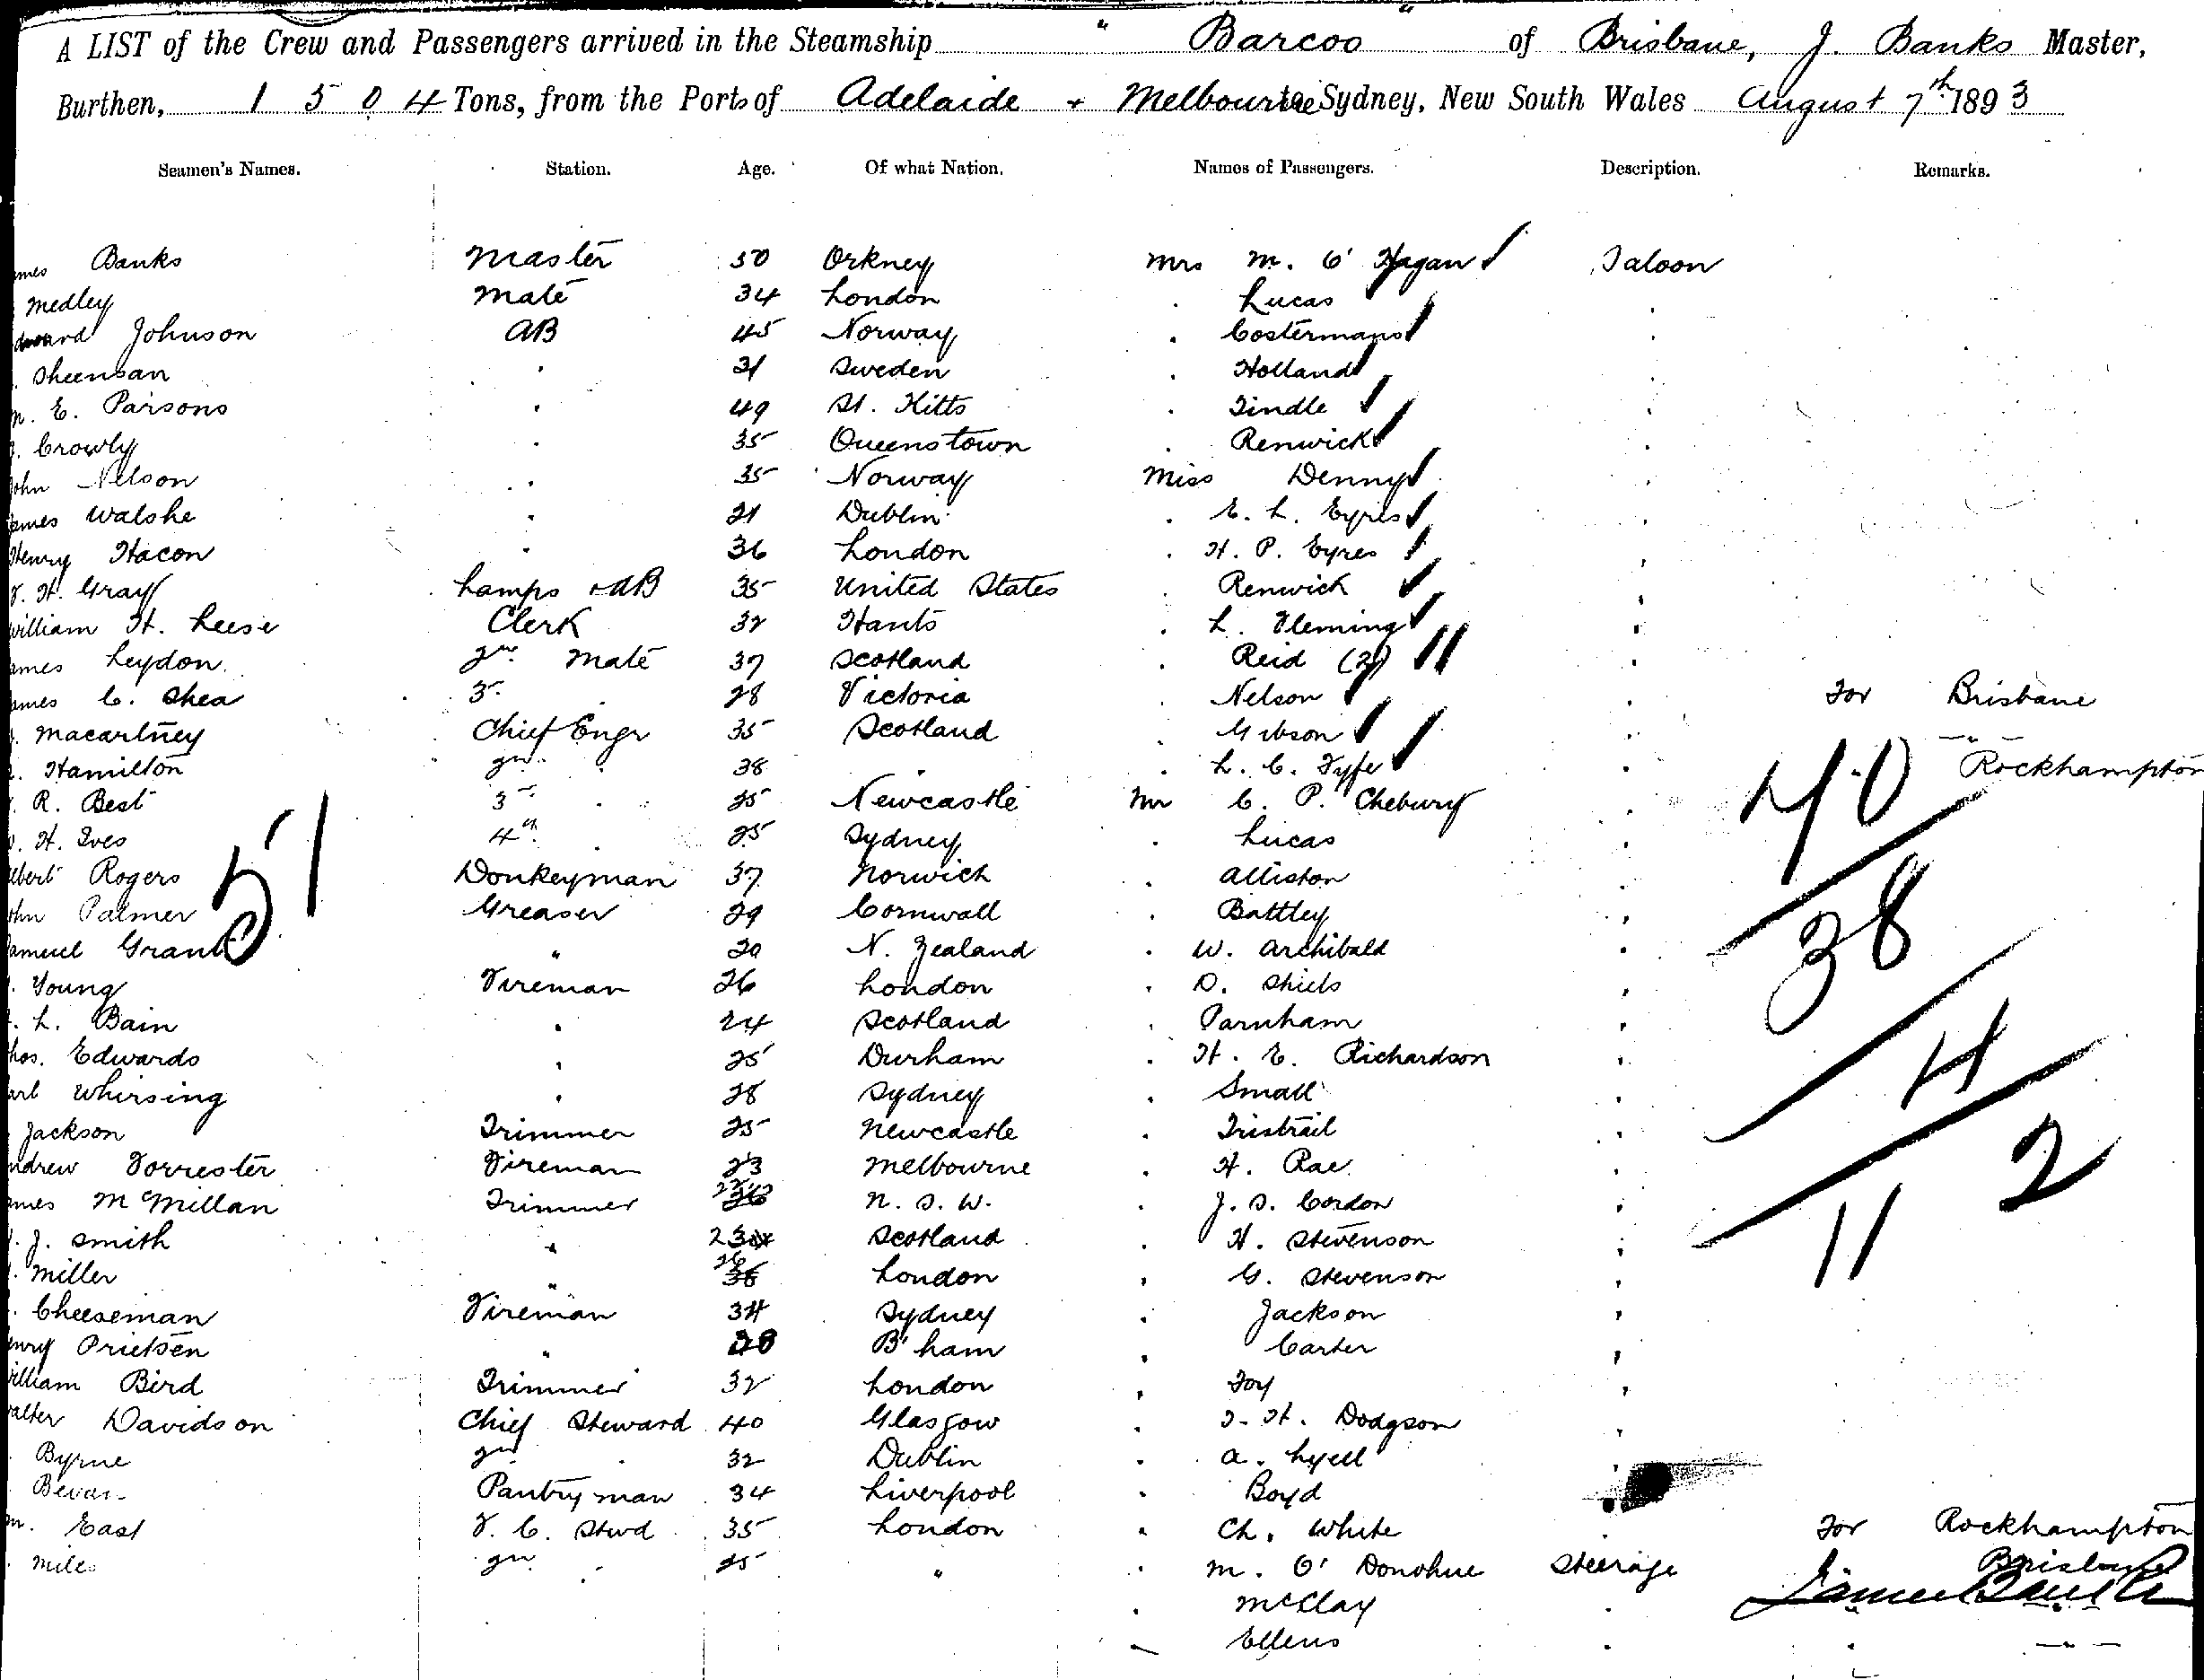 A LIST of the Crew and Passengers arrived in the Steamship " Barcoo " of Brisbane, J. Banks Master,
Burthen, 1504 Tons, from the Ports of Adelaide + Melbourne to Sydney, New South Wales August 7th 1893
Seamen's Names. Station. Age. Of what Nation. Names of Passengers. Description. Remarks.
mes Banks Master 50 Orkney Mrs M. O' Hagan Saloon
Medley Mate 34 London . Lucas .
dward Johnson AB 45 Norway . Costermans .
Sheensan . 31 Sweden . Holland .
m. E. Parsons . 49 St. Kitts . Tindle .
. Crowly . 35 Queenstown . Renwick .
ohn Nelson . 35 Norway Miss Denny .
ames Walshe . 21 Dublin . E. L. Eyres .
Henry Hacon . 36 London . H. P. Eyres .
F. H. Gray Lamps & AB 35 United States . Renwick .
william H. Leese Clerk 32 Hants . L. Fleming .
ames Leydon 2nd Mate 37 Scotland . Reid (2) .
ames C. Shea 3rd . 28 Victoria . Nelson . For Brisbane
. Macartney Chief Engr 35 Scotland . Gibson . - " -
. Hamilton 2nd . 38 . . L. C. Fyfe . Rockhampton
. R. Best 3rd . 25 Newcastle Mr C. P. Chebury .
. H. Ives 4th . 25 Sydney . Lucas .
lbert Rogers Donkeyman 37 Norwich . Alliston .
ohn Palmer Greaser 29 Cornwall . Battley .
amuel Grant " 20 N. Zealand . W. Archibald .
. Young Fireman 26 London . D. Shiels .
. L. Bain . 24 Scotland . Parnham .
hos. Edwards . 25 Durham . H. E. Richardson .
arl Whirsing . 28 Sydney . Small .
Jackson Trimmer 25 Newcastle . Tristrail .
ndrew Forrester Fireman 23 Melbourne . H. Rae .
ames McMillan Trimmer 22 N. S. W. . J. S. Cordon .
. J. Smith " 23 Scotland . H. Stevenson .
. Miller " 26 London . G. Stevenson .
. Cheeseman Fireman 34 Sydney . Jackson .
enry Prietsen " 28 B'ham . Carter .
illiam Bird Trimmer 32 London . Foy .
alter Davidson Chief Steward 40 Glasgow . T. H. Dodgson .
Byrne 2nd . 32 Dublin . A. Lyell .
Bevan Pantryman 34 Liverpool . Boyd
m. East F. C. Stwd 35 London . Ch. White . For Rockhampton
Miles 2nd . 25 " . M. O' Donohue Steerage Brisbane
. McClay . James Banks
Ellens . - " -
51
40
38
4
2
11